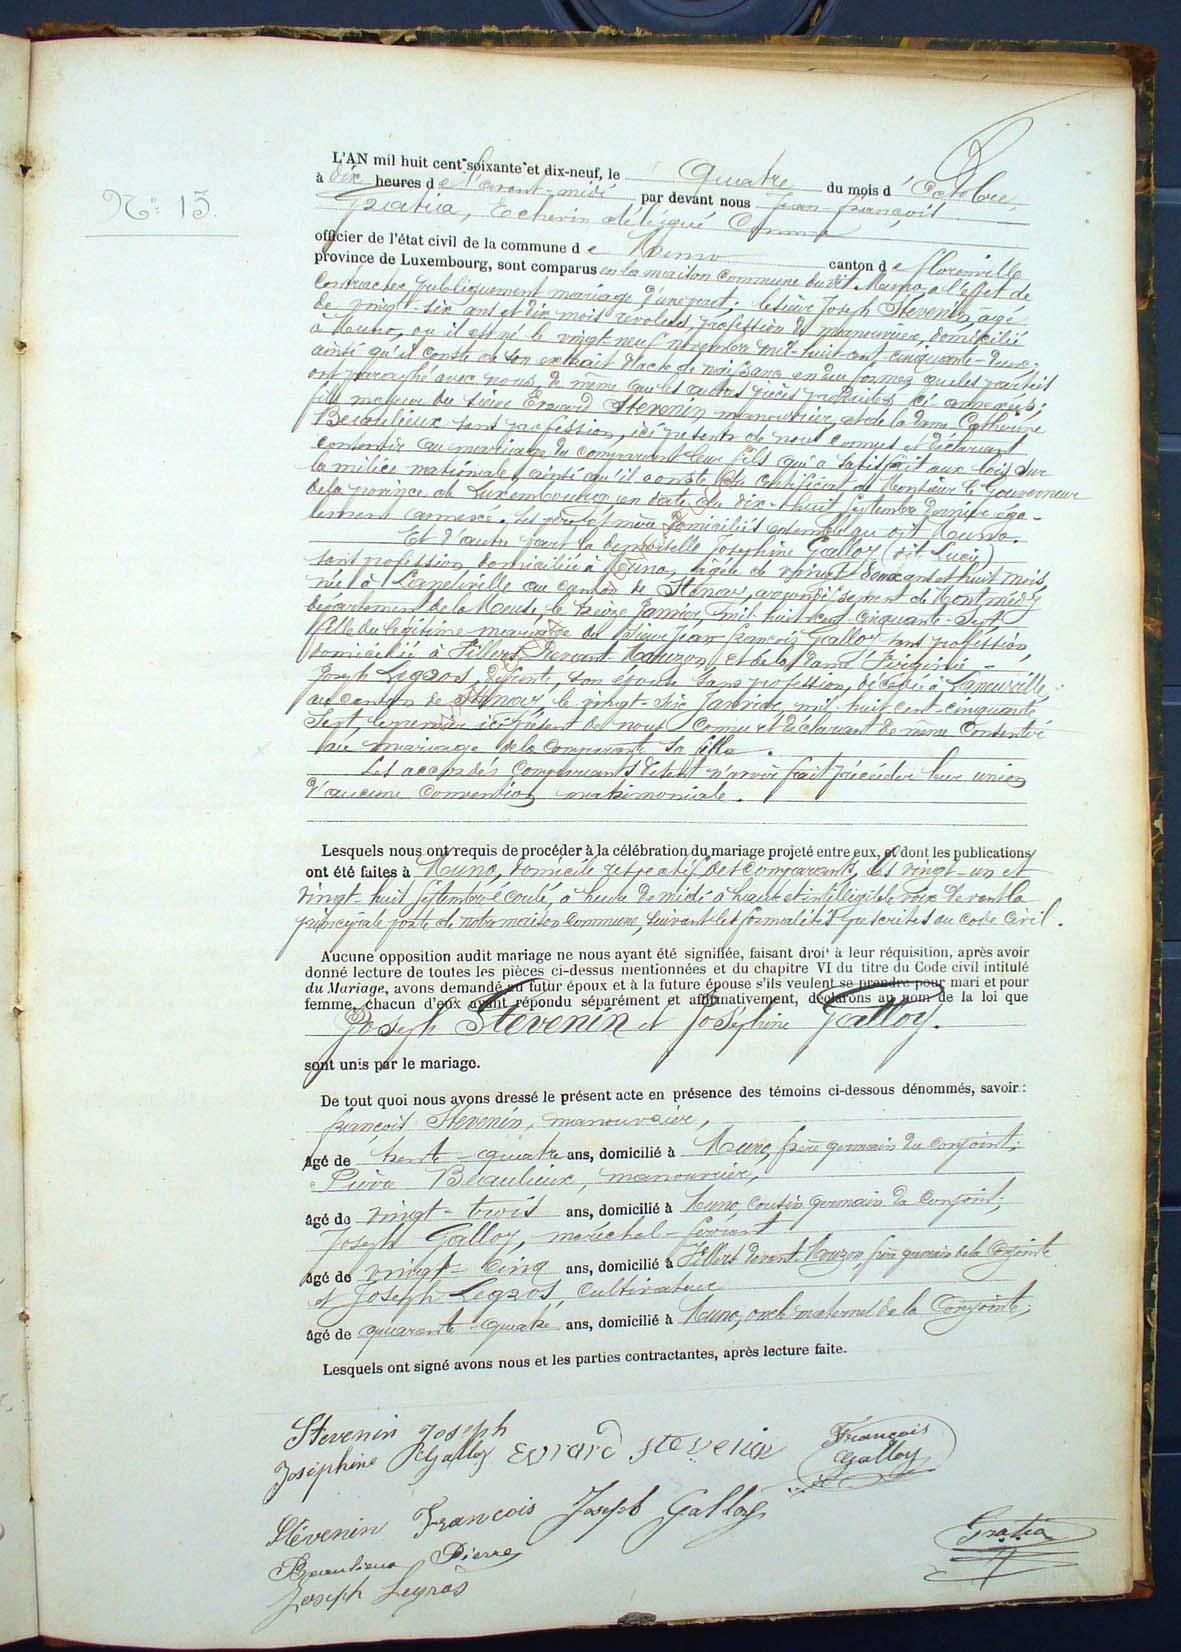 N° 13.
L'AN mil huit cent soixante et dix-neuf, le quatre du mois d'Octobre,
à dix heures de l'avant-midi par devant nous Jean-François
Gratia, Echevin délégué Comme
officier de l'état civil de la commune de Muno canton de Florenville
province de Luxembourg, sont comparus en la maison Commune dudit Muno à l'effet de
contracter publiquement mariage, d'une part; le sieur Joseph Stévenin, âgé
de vingt-six ans et dix mois révolus, profession de manouvrier, domicilié
à Muno, où il est né le vingt-neuf novembre mil-huit-cent-cinquante-deux;
ainsi qu'il conste de son extrait d'acte de naissance en due forme, que les parties
ont paraphé avec nous, de même que les autres pièces produites ci annexées;
fils majeur du sieur Evrard Stévenin, manouvrier, et de la dame Catherine
Beaulieux sans profession, ici présents de nous connus et déclarant
consentir au mariage du comparant leur fils qui a satisfait aux lois sur
la milice nationale, ainsi qu'il conste du Certificat de Monsieur le Gouverneur
de la province de Luxembourg en date du dix-huit Septembre dernier éga-
lement annexé. Les père et mère domiciliés ensemble au dit Muno.
Et d'autre part la demoiselle Joséphine Galloy (dit Lucie)
sans profession, domiciliée à Muno, âgée de vingt-deux ans et huit mois,
née à Laneuville au canton de Stenay, arrondissement de Montmédy
département de la Meuse, le treize Janvier, mil-huit-cent-cinquante-sept
fille du légitime mariage du sieur Jean François Galloy sans profession,
domicilié à Villers Devant-Mouzon, et de la dame Virginie -
Joseph Legros, défunte, son épouse sans profession, décédée à Laneuville,
au canton de Stenay, le vingt-six Janvier, mil-huit-cent-cinquante
sept, le premier ici présent de nous connu et déclarant de même consentir
au mariage de la Comparante sa fille.
Les accordés Comparants disent n'avoir fait précéder leur union
d'aucune Convention matrimoniale.
Lesquels nous ont requis de procéder à la célébration du mariage projeté entre eux, et dont les publications
ont été faites à Muno, domicile respectif des Comparants, les vingt-un et
vingt-huit Septembre écoulé, à heure de midi à haute et intelligible voix devant la
principale porte de notre maison Commune, suivant les formalités prescrites au Code Civil.
Aucune opposition audit mariage ne nous ayant été signifiée, faisant droit à leur réquisition, après avoir
donné lecture de toutes les pièces ci-dessus mentionnées et du chapitre VI du titre du Code civil intitulé
du Mariage, avons demandé au futur époux et à la future épouse s'ils veulent se prendre pour mari et pour
femme, chacun d'eux ayant répondu séparément et affirmativement, déclarons au nom de la loi que
Joseph Stévenin et Joséphine Galloy.
sont unis par le mariage.
De tout quoi nous avons dressé le présent acte en présence des témoins ci-dessous dénommés, savoir :
François Stévenin, manouvrier,
âgé de trente-quatre ans, domicilié à Muno, frère germain du Conjoint;
Pierre Beaulieux, manouvrier,
âgé de vingt-trois ans, domicilié à Muno, Cousin germain du Conjoint;
Joseph Galloy, maréchal-ferrant
âgé de vingt-cinq ans, domicilié à Villers Devant-Mouzon, frère germain de la Conjointe
et Joseph Legros, Cultivateur
âgé de quarante-quatre ans, domicilié à Muno, oncle maternel de la Conjointe;
Lesquels ont signé avons nous et les parties contractantes, après lecture faite.
Stevenin Joseph
Joséphine Galloy Evrard Stevenin François Galloy
Stévenin François Joseph Galloy
Beaulieux Pierre Gratia
Joseph Legros